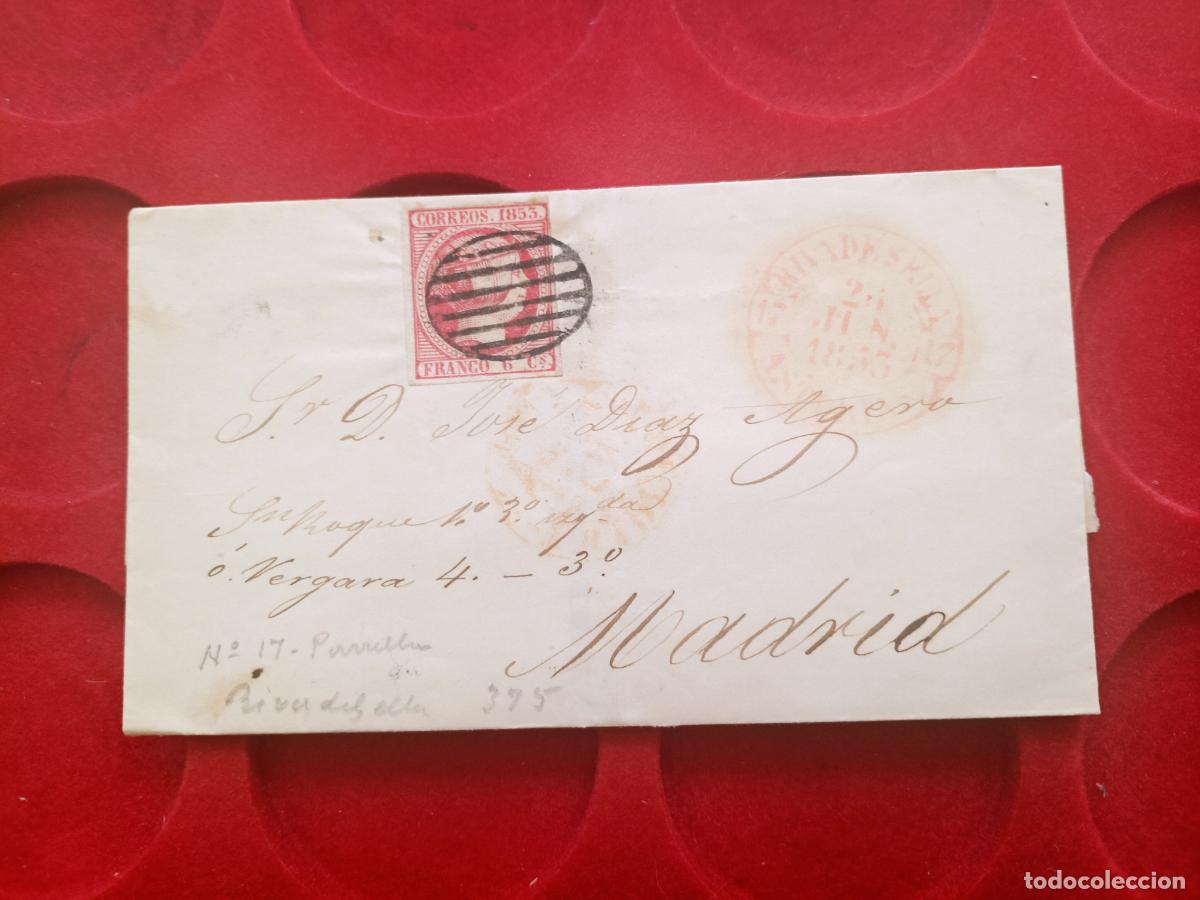 CORREOS. 1853.
FRANCO 6 Cs
RIVADESELLA
25
JUN
1853
Sr. D. José Diaz Agero
Sn Roque 1º 3º izqda
ó Vergara 4. - 3º.
Madrid
Nº 17 - Parrilla
Rivadesella 375
todocoleccion